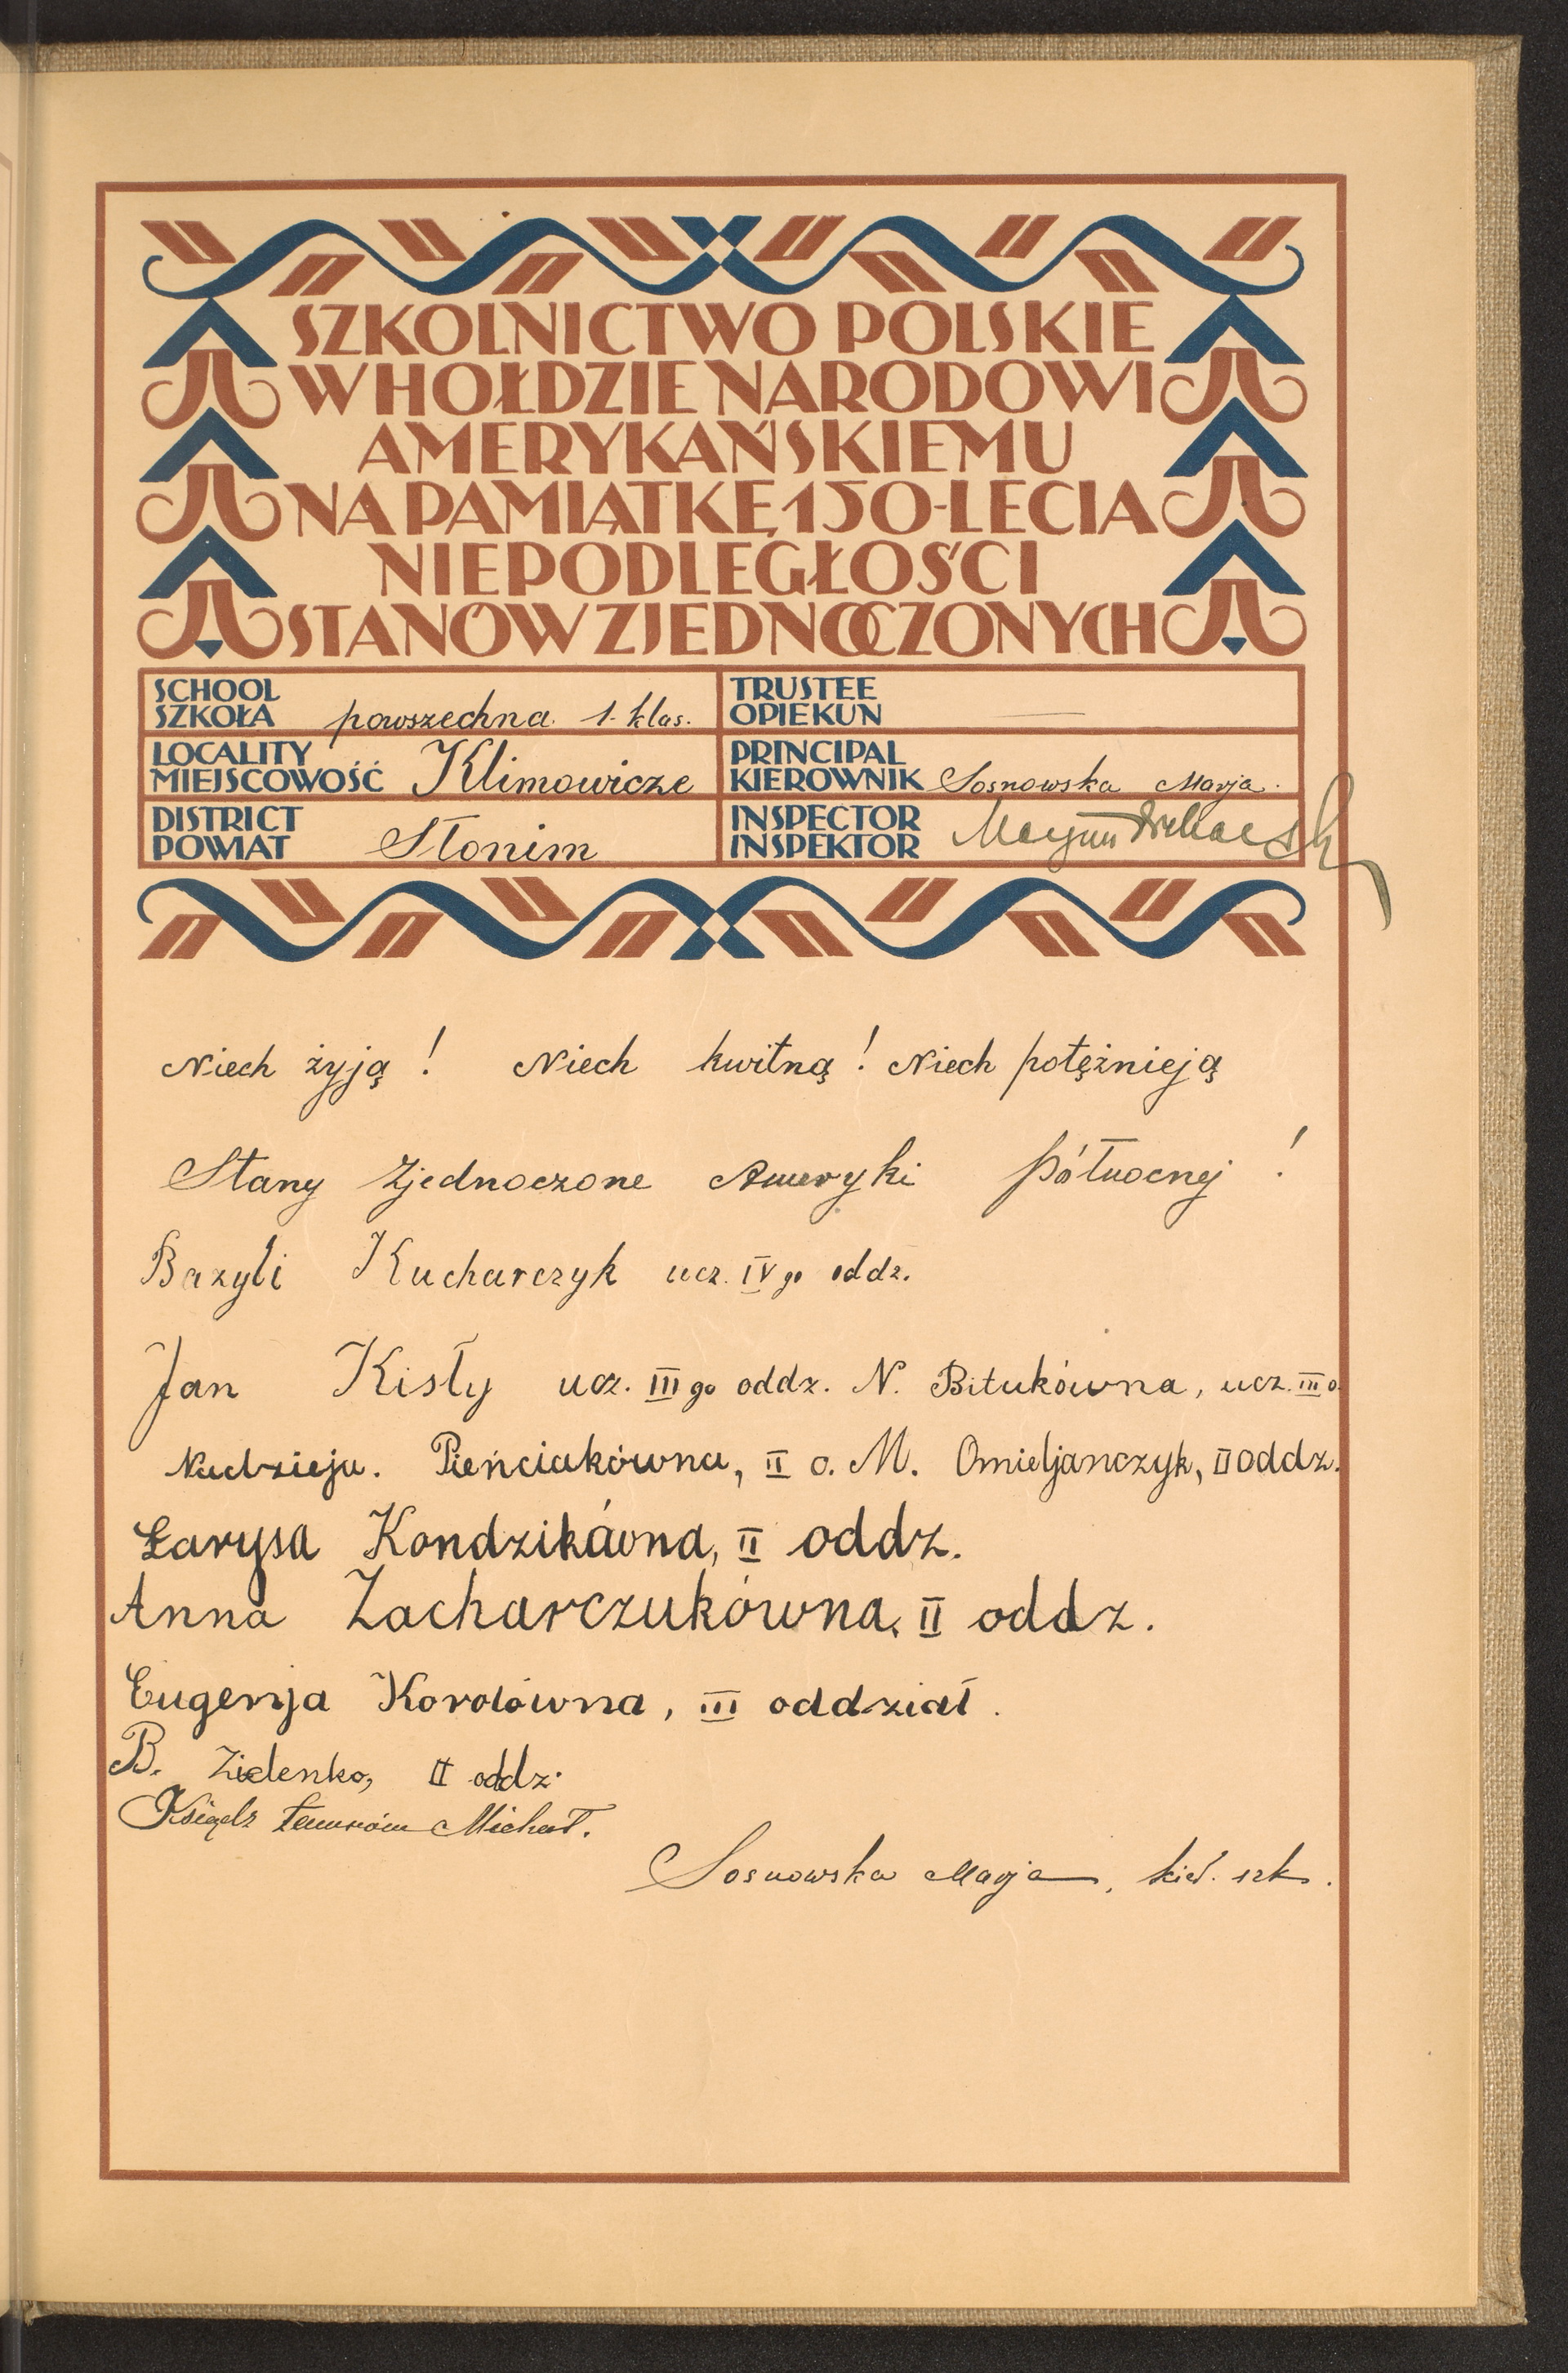 SZKOLNICTWO POLSKIE
W HOŁDZIE NARODOWI
AMERYKAŃSKIEMU
NA PAMIĄTKĘ 150-LECIA
NIEPODLEGŁOŚCI
STANÓW ZJEDNOCZONYCH
SCHOOL
SZKOŁA powszechna. 1. klas.
TRUSTEE
OPIEKUN —
LOCALITY
MIEJSCOWOŚĆ Klimowicze
PRINCIPAL
KIEROWNIK Sosnowska Marja.
DISTRICT
POWIAT Słonim
INSPECTOR
INSPEKTOR
Niech żyją! Niech kwitną! Niech potężnieją
Stany Zjednoczone Ameryki Północnej!
Bazyli Kucharczyk ucz. IV go oddz.
Jan Kisły ucz. III go oddz. N. Bitukówna, ucz. III o.
Nadzieja. Pieńciukówna, II o. M. Omieljanczyk, II oddz.
Łarysa Kondzikówna, II oddz.
Anna Zacharczukówna, II oddz.
Eugenja Korolówna, III oddział.
B. Zielenko, II oddz.
Ksiądz Michał.
Sosnowska Marja, kier. szk.